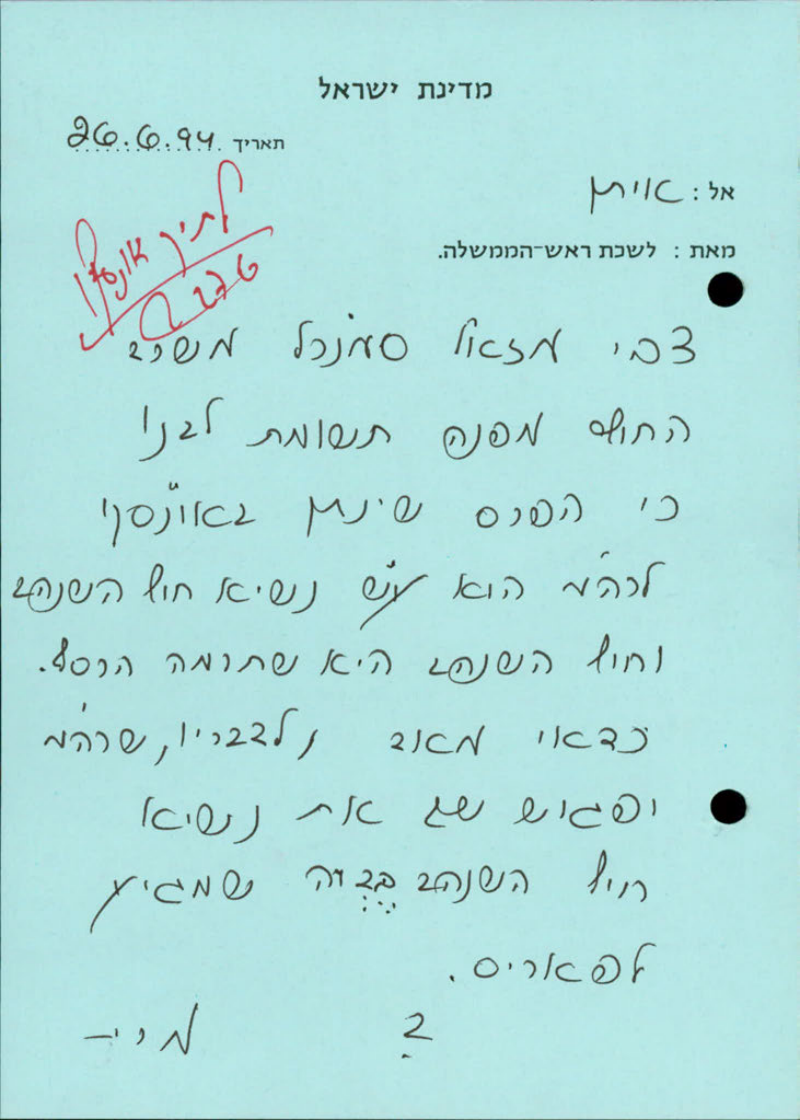 מדינת ישראל
תאריך 26.6.94
אל: איתן
לתיק אונסקו
מאת: לשכת ראש-הממשלה.
צבי מזאל סמנכל משרד
החוץ מפנה תשומת לבנו
כי הפרס שינתן באונסקו
לרה"מ הוא ע"ש נשיא חוף השנהב
וחוף השנהב היא שתרמה הכסף.
כדאי מאוד, לדבריו, שרה"מ
יפגוש שם את נשיא
חוף השנהב שמגיע
לפאריס.
מרי-